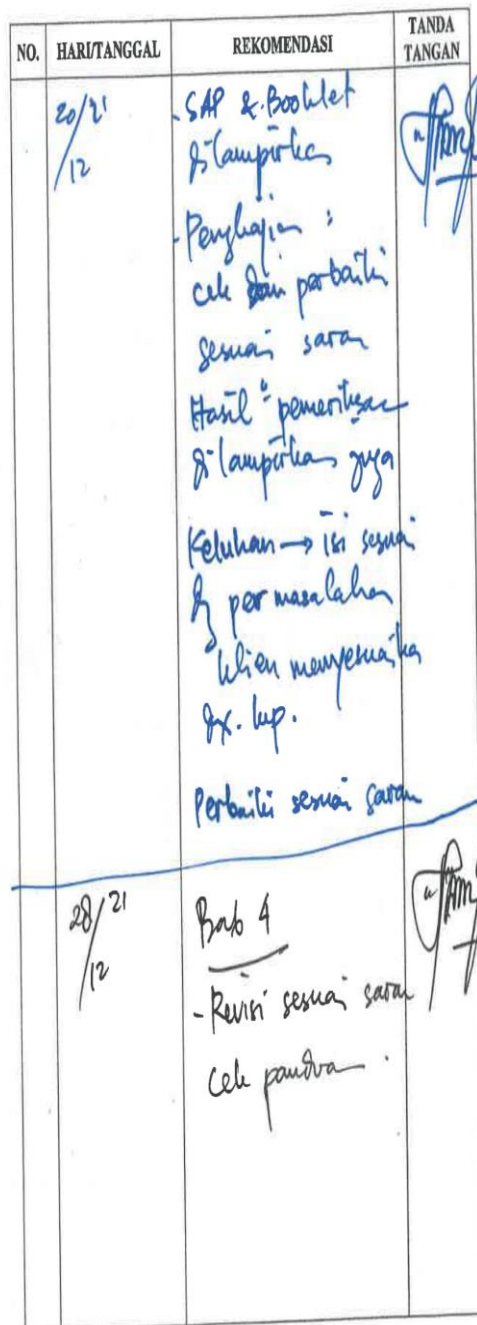 NO. HARI/TANGGAL REKOMENDASI TANDA TANGAN
20/21
/12
- SAP & Booklet
dilampirkan
- Pengkajian :
cek dan perbaiki
sesuai saran
Hasil" pemeriksaan
dilampirkan juga
Keluhan → isi sesuai
dg permasalahan
klien menyesuaikan
dx. kep.
Perbaiki sesuai saran
28/21
/12
Bab 4
- Revisi sesuai saran
cek panduan